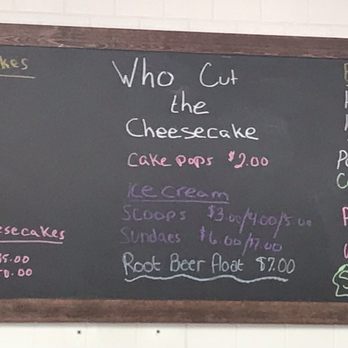 Who Cut
the
Cheesecake
Cake pops $2.00
Ice Cream
Scoops $3.00/4.00/5.00
Sundaes $6.00/7.00
Root Beer float $7.00